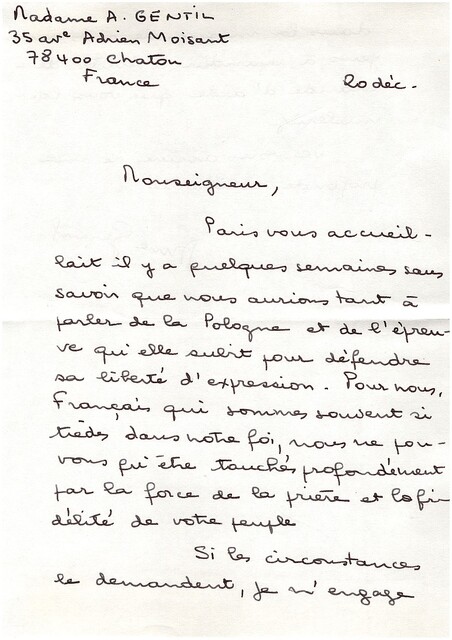 Madame A. GENTIL
35 ave Adrien Moisant
78400 Chatou
France
20 déc.
Monseigneur,
Paris vous accueil-
lait il y a quelques semaines sans
savoir que nous aurions tant à
parler de la Pologne et de l'épreu-
ve qu'elle subit pour défendre
sa liberté d'expression. Pour nous,
Français qui sommes souvent si
tièdes dans notre foi, nous ne pou-
vons qu'être touchés profondément
par la force de la prière et la fi-
délité de votre peuple
Si les circonstances
le demandent, je m'engage